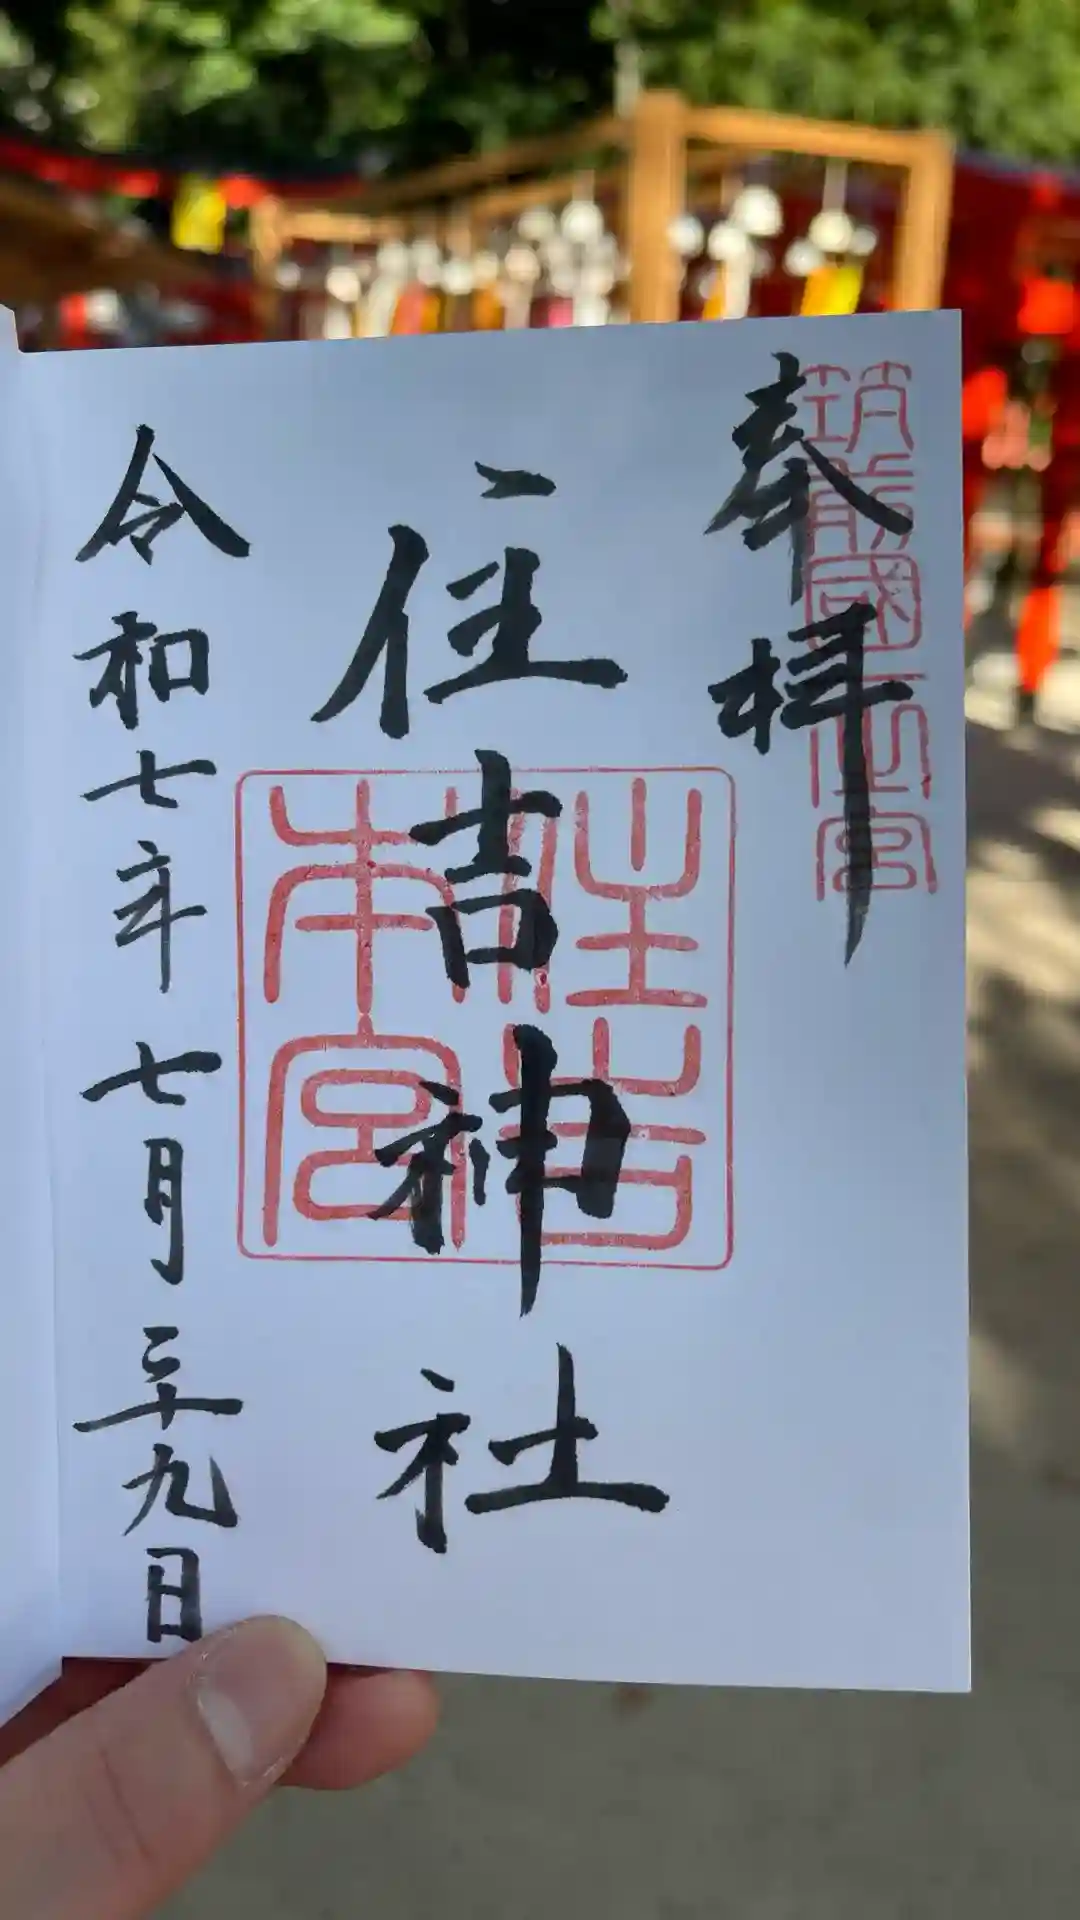 奉拝
筑前國一之宮
住吉神社
住吉
本宮
令和七年七月二十九日